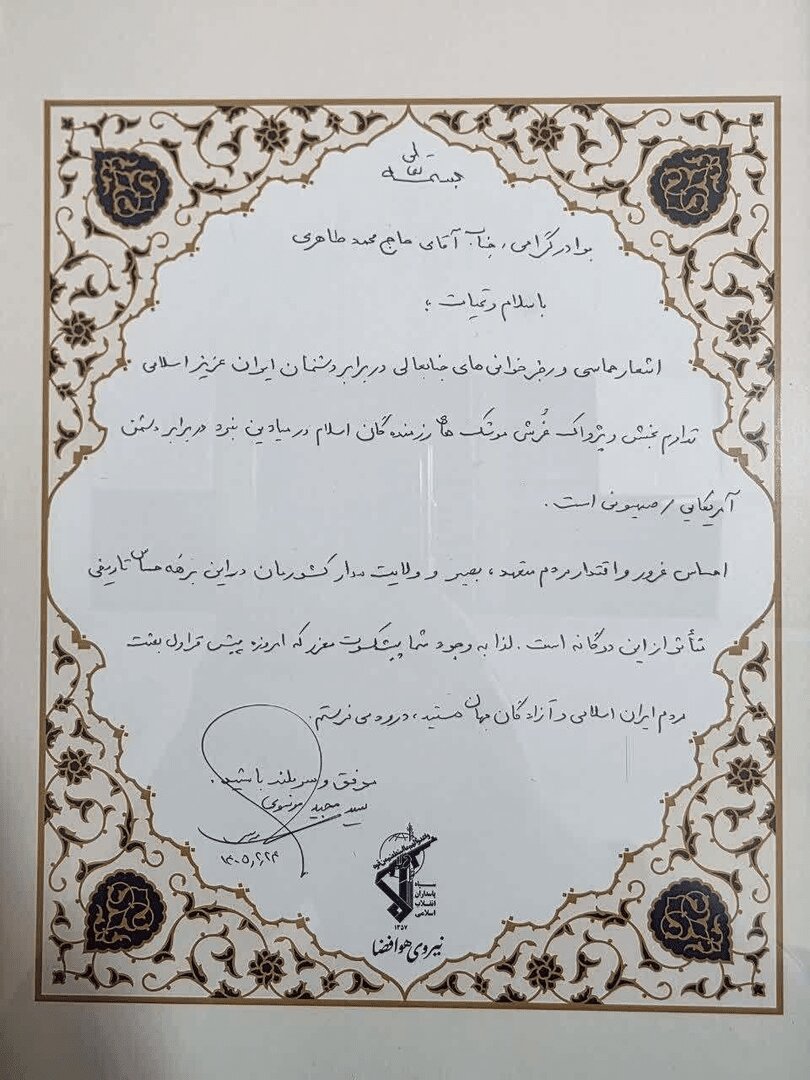 بسمه تعالی
برادر گرامی، جناب آقای حاج محمد طاهری
با سلام و تحیات ؛
اشعار حماسی و رجز خوانی های جنابعالی در برابر دشمنان ایران عزیز اسلامی
تداوم بخش و پژواک غُرش موشک های رزمنده گان اسلام در میادین نبرد در برابر دشمن
آمریکایی / صهیونی است .
احساس غرور و اقتدار مردم متعهد ، بصیر و ولایت مدار کشورمان در این برهه حساس تاریخی
متأثر از این دوگانه است . لذا به وجود شما پیشکسوت معزز که امروزه پیش قراول بعثت
مردم ایران اسلامی و آزادگان جهان هستید ، درود می فرستم .
موفق و سربلند باشید .
سید مجید موسوی
۱۴۰۵,۲,۲۴
سپاه
پاسداران
انقلاب
اسلامی
۱۳۵۷
نیروی هوافضا